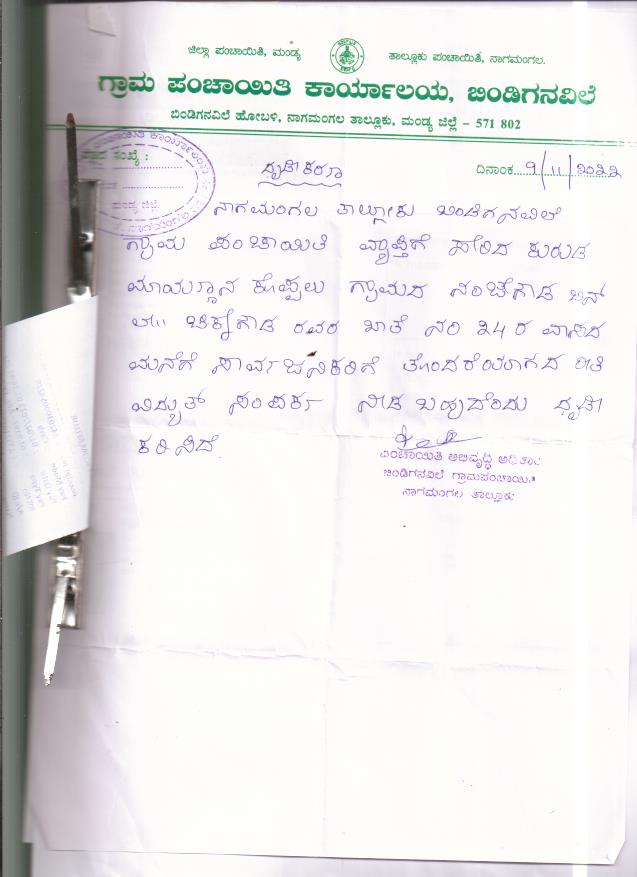 ಜಿಲ್ಲಾ ಪಂಚಾಯಿತಿ, ಮಂಡ್ಯ ತಾಲ್ಲೂಕು ಪಂಚಾಯಿತಿ, ನಾಗಮಂಗಲ.
ಗ್ರಾಮ ಪಂಚಾಯಿತಿ ಕಾರ್ಯಾಲಯ, ಬಿಂಡಿಗನವಿಲೆ
ಬಿಂಡಿಗನವಿಲೆ ಹೋಬಳಿ, ನಾಗಮಂಗಲ ತಾಲ್ಲೂಕು, ಮಂಡ್ಯ ಜಿಲ್ಲೆ - 571 802
ಸಂಖ್ಯೆ :
ಮಂಡ್ಯ ಜಿಲ್ಲೆ
ದಿನಾಂಕ 9/11/೨೦೨೨
ದೃಢೀಕರಣ
ನಾಗಮಂಗಲ ತಾಲ್ಲೋಕು ಬಿಂಡಿಗನವಿಲೆ
ಗ್ರಾಮ ಪಂಚಾಯಿತಿ ವ್ಯಾಪ್ತಿಗೆ ಸೇರಿದ ಕುರುಡ
ಕೊಪ್ಪಲು ಗ್ರಾಮದ ನಂಜೇಗೌಡ ಬಿನ್
ಚಿಕ್ಕೇಗೌಡ ರವರ ಖಾತೆ ನಂ ೨4 ರ ವಾಸದ
ಮನೆಗೆ ಸಾರ್ವಜನಿಕರಿಗೆ ತೊಂದರೆಯಾಗದ ರೀತಿ
ವಿದ್ಯುತ್ ಸಂಪರ್ಕ ನೀಡ ಬಹುದೆಂದು ದೃಢೀ
ಕರಿಸಿದೆ.
ಪಂಚಾಯಿತಿ ಅಭಿವೃದ್ಧಿ ಅಧಿಕಾರಿ
ಬಿಂಡಿಗನವಿಲೆ ಗ್ರಾಮಪಂಚಾಯಿತಿ
ನಾಗಮಂಗಲ ತಾಲ್ಲೂಕು